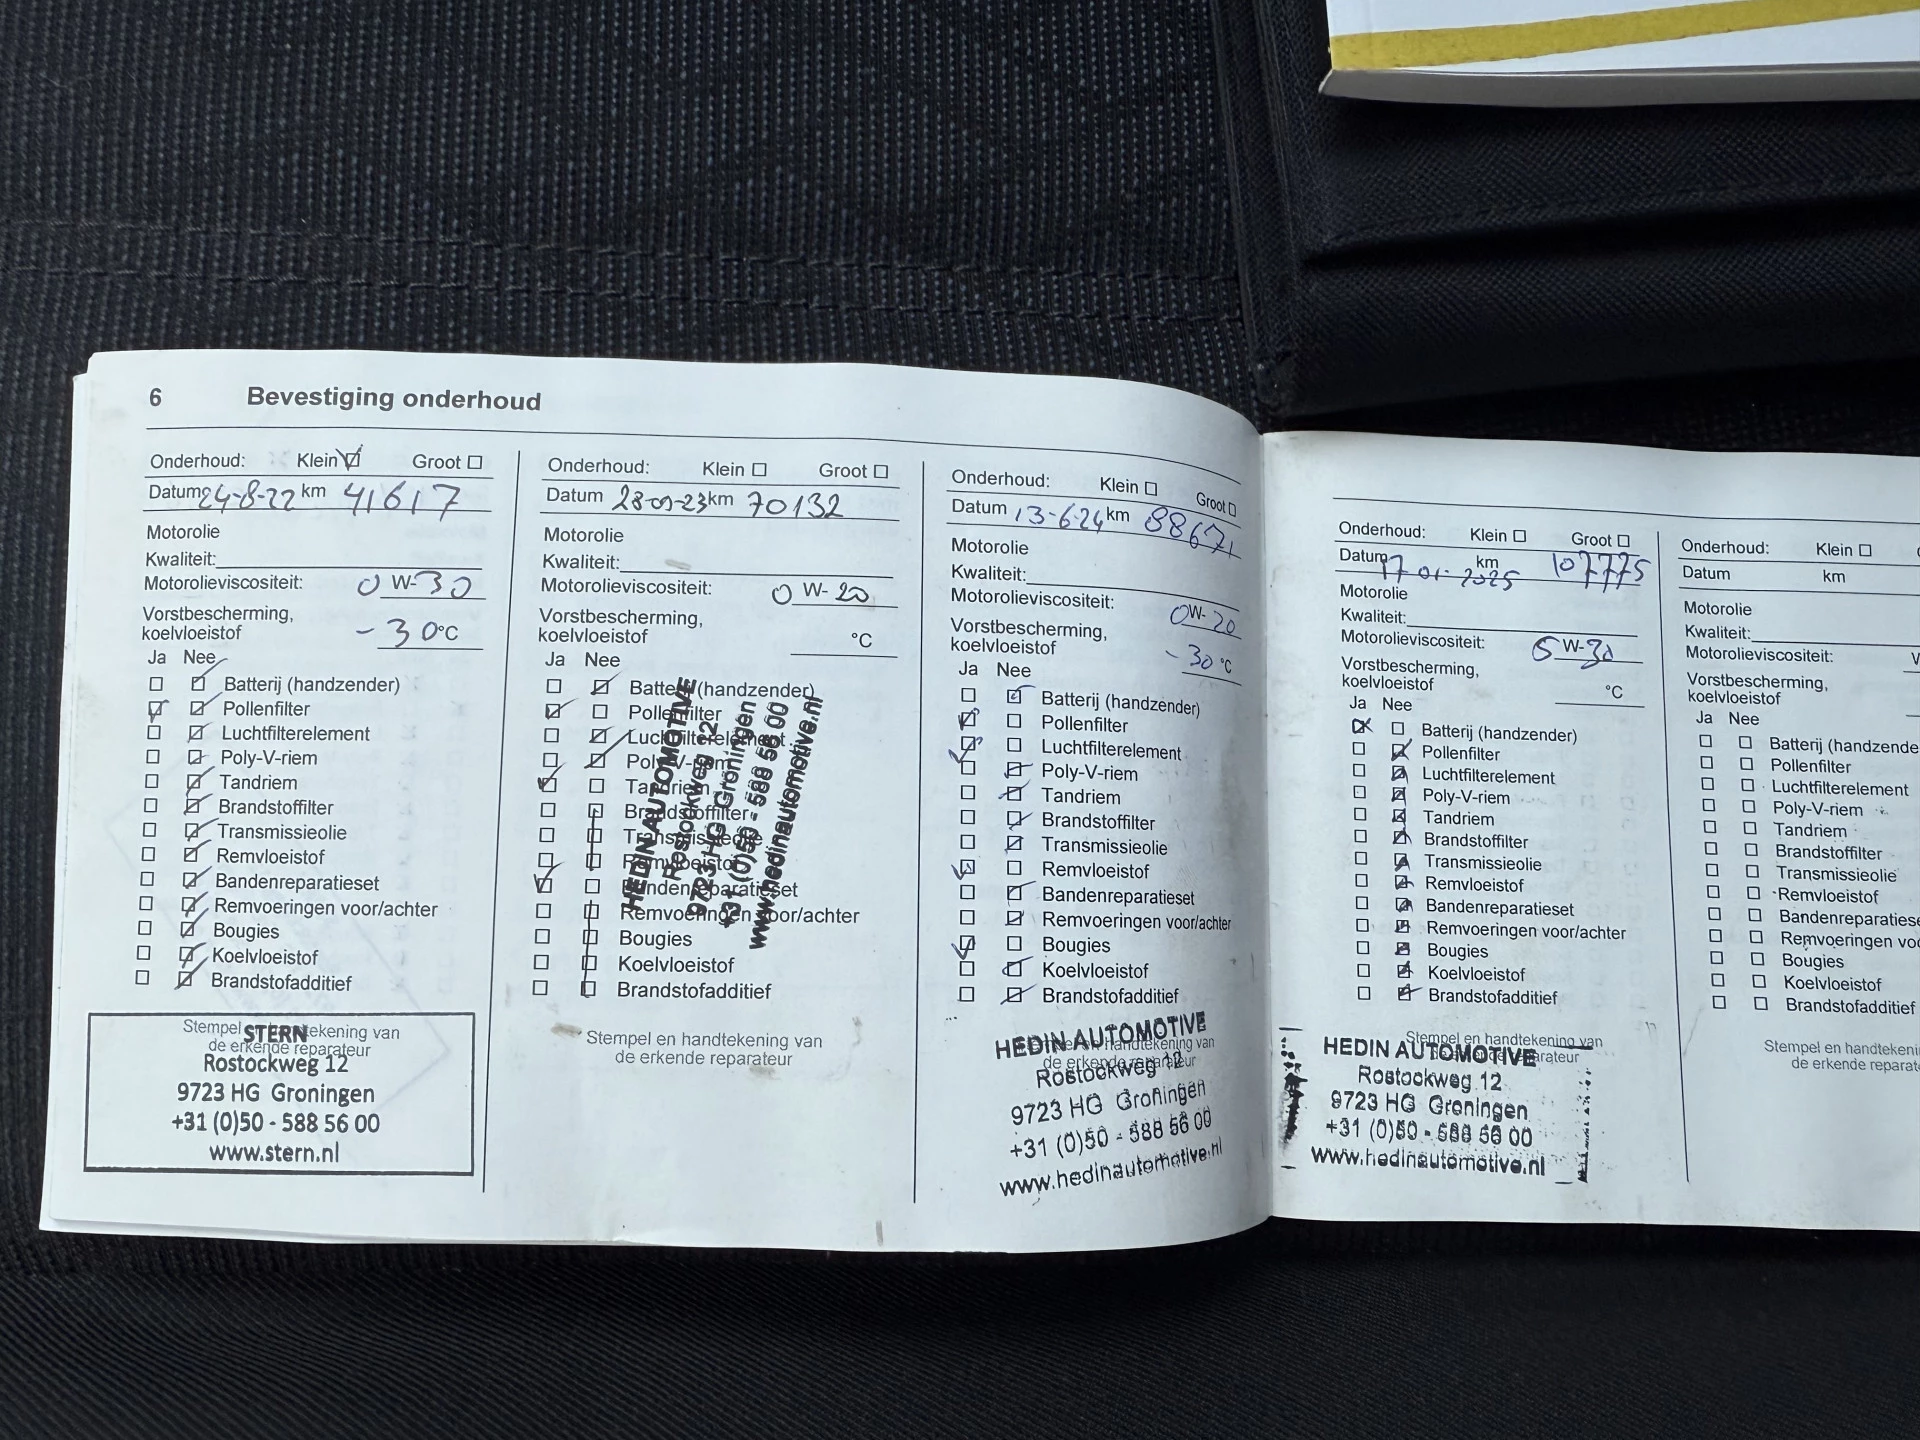 6 Bevestiging onderhoud
Onderhoud: Klein Groot
Datum 24-8-22 km 41617
Motorolie
Kwaliteit:
Motorolieviscositeit: 0 W-30
Vorstbescherming,
koelvloeistof -30 °C
Ja Nee
Batterij (handzender)
Pollenfilter
Luchtfilterelement
Poly-V-riem
Tandriem
Brandstoffilter
Transmissieolie
Remvloeistof
Bandenreparatieset
Remvoeringen voor/achter
Bougies
Koelvloeistof
Brandstofadditief
Stempel en handtekening van
de erkende reparateur
STERN
Rostockweg 12
9723 HG Groningen
+31 (0)50 - 588 56 00
www.stern.nl
Onderhoud: Klein Groot
Datum 28-09-23 km 70132
Motorolie
Kwaliteit:
Motorolieviscositeit: 0 W-20
Vorstbescherming,
koelvloeistof °C
Ja Nee
Batterij (handzender)
Pollenfilter
Luchtfilterelement
Poly-V-riem
Tandriem
Brandstoffilter
Transmissieolie
Remvloeistof
Bandenreparatieset
Remvoeringen voor/achter
Bougies
Koelvloeistof
Brandstofadditief
HEDIN AUTOMOTIVE
Rostockweg 12
9723 HG Groningen
+31 (0)50 - 588 56 00
www.hedinautomotive.nl
Stempel en handtekening van
de erkende reparateur
Onderhoud: Klein Groot
Datum 13-6-24 km 88671
Motorolie
Kwaliteit:
Motorolieviscositeit: 0W-20
Vorstbescherming,
koelvloeistof -30 °C
Ja Nee
Batterij (handzender)
Pollenfilter
Luchtfilterelement
Poly-V-riem
Tandriem
Brandstoffilter
Transmissieolie
Remvloeistof
Bandenreparatieset
Remvoeringen voor/achter
Bougies
Koelvloeistof
Brandstofadditief
Stempel en handtekening van
de erkende reparateur
HEDIN AUTOMOTIVE
Rostockweg 12
9723 HG Groningen
+31 (0)50 - 588 56 00
www.hedinautomotive.nl
Onderhoud: Klein Groot
Datum 17-01-2025 km 107775
Motorolie
Kwaliteit:
Motorolieviscositeit: 5 W-30
Vorstbescherming,
koelvloeistof °C
Ja Nee
Batterij (handzender)
Pollenfilter
Luchtfilterelement
Poly-V-riem
Tandriem
Brandstoffilter
Transmissieolie
Remvloeistof
Bandenreparatieset
Remvoeringen voor/achter
Bougies
Koelvloeistof
Brandstofadditief
Stempel en handtekening van
de erkende reparateur
HEDIN AUTOMOTIVE
Rostockweg 12
9723 HG Groningen
+31 (0)50 - 588 56 00
www.hedinautomotive.nl
Onderhoud: Klein
Datum km
Motorolie
Kwaliteit:
Motorolieviscositeit:
Vorstbescherming,
koelvloeistof
Ja Nee
Batterij (handzende
Pollenfilter
Luchtfilterelement
Poly-V-riem
Tandriem
Brandstoffilter
Transmissieolie
Remvloeistof
Bandenreparatiese
Remvoeringen voo
Bougies
Koelvloeistof
Brandstofadditief
Stempel en handtekeni
de erkende reparat